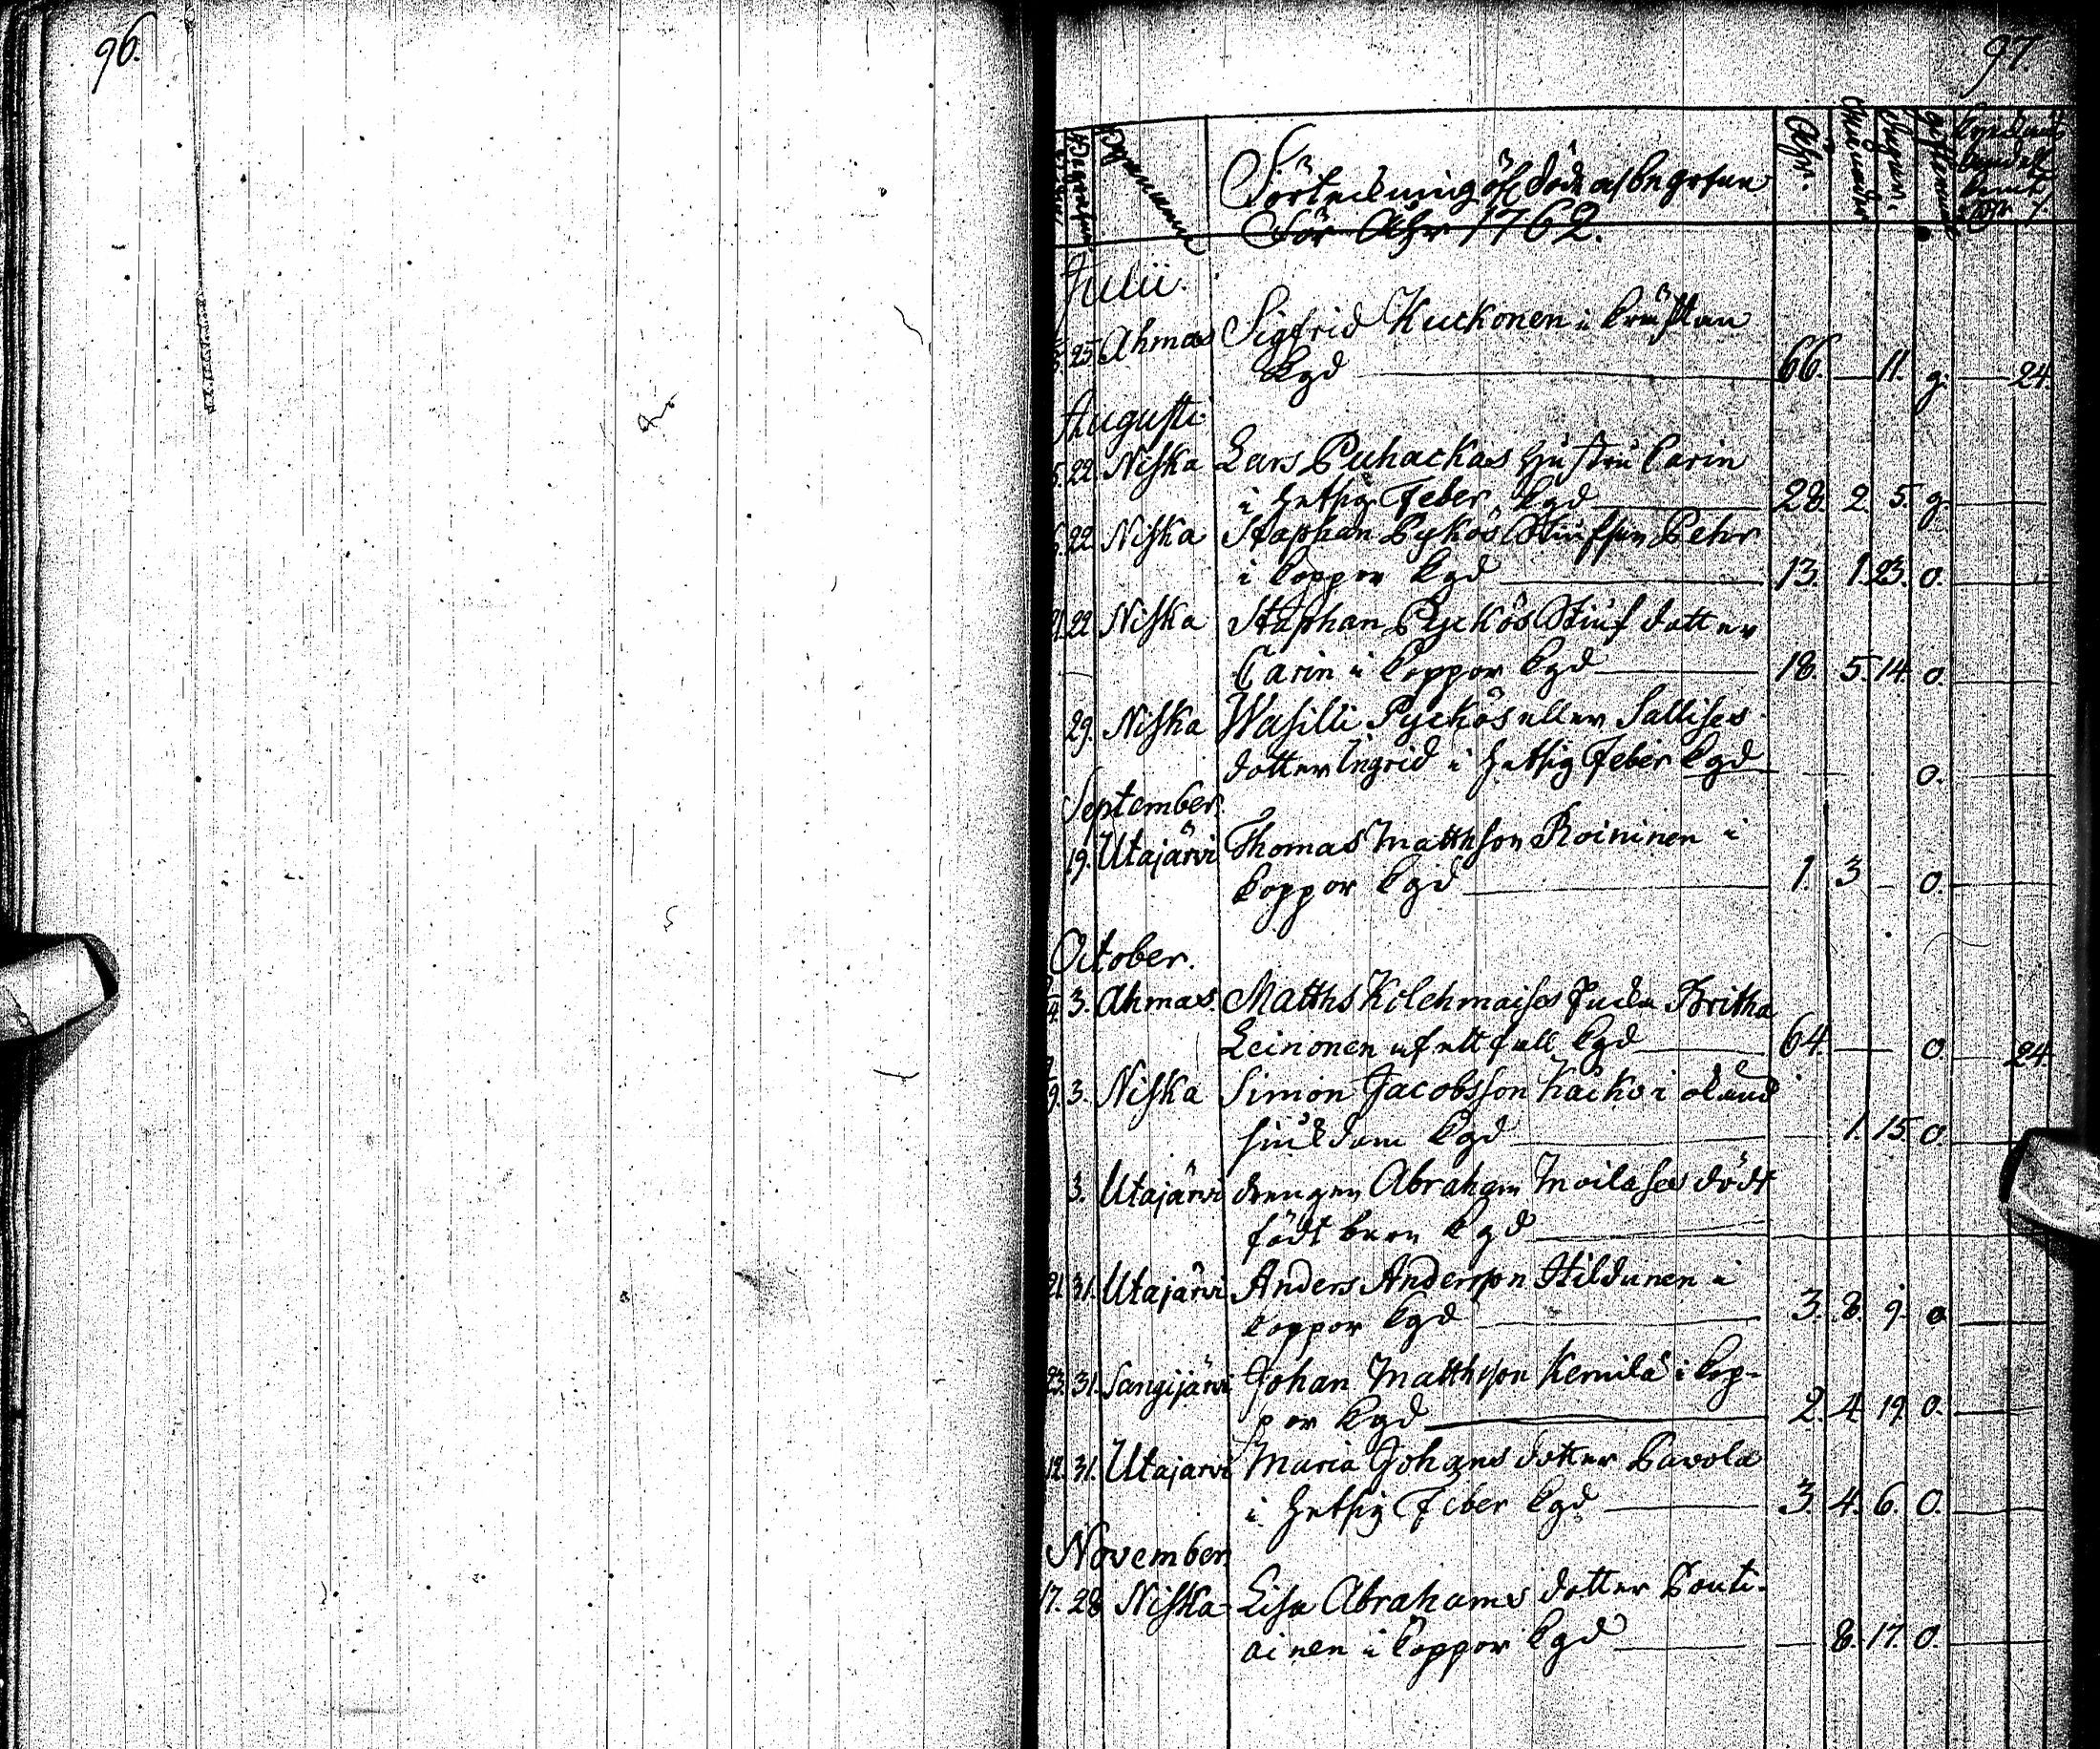 96.
97.
Åhr.
Månader
Dagar.
Byarnamn
Förteckning öfr döde och begrafne
För Åhr 1762.
Julii.
25 Ahmas Sigfrid Kuckonen i bröstan
kgd 66. 11. g. 24.
Augusti
22 Niska Lars Puhackas hustru Carin
i hetsig Feber kgd 28. 2. 5. g.
22 Niska Staphan Pykös Stiufson Pehr
i koppor kgd 13. 1. 23. o.
21 22 Niska Staphan Pyckös Stiufdotter
Carin i koppor kgd 18. 5. 14. o.
29. Niska Wasilli Pyckös eller Sallises
dotter Ingrid i hetsig Feber kgd o.
September.
19. Utajärvi Thomas Matthson Roininen i
koppor kgd 1. 3 o.
October.
3. Ahmas. Matths Kolehmaises Enka Britha
Leinonen af ett fall kgd 64. o. 24.
9. 3. Niska Simon Jacobsson Kacko i okänd
siukdom kgd 1. 15. o.
3. Utajärvi drengen Abraham Moilases dödt
födt barn kgd
21 31. Utajärvi Anders Andersson Hildunen i
koppor kgd 3. 8. 9. o
23. 31. Sangijärvi Johan Matthsson Kemilä i kop-
por kgd 2. 4 19. o.
12. 31. Utajärvi Maria Johans dotter Pavola
i hetsig Feber kgd 3. 4. 6. o.
November
17. 28 Niska Lisa Abrahams dotter Ponti-
ainen i koppor kgd 8. 17. o.